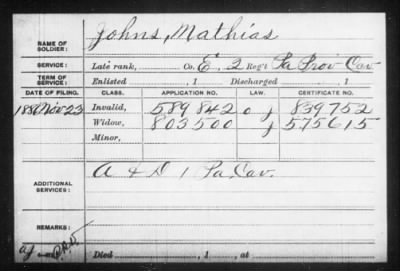 NAME OF SOLDIER: Johns, Mathias
SERVICE: Late rank, Co. E. 2 Reg't Pa Prov Cav
TERM OF SERVICE: Enlisted , 1 Discharged , 1
DATE OF FILING. CLASS. APPLICATION NO. LAW. CERTIFICATE NO.
Nov 23 Invalid, 589842 839752
Widow, 803500 575615
Minor,
ADDITIONAL SERVICES: A & D 1 Pa. Cav.
REMARKS:
Died , 1 , at